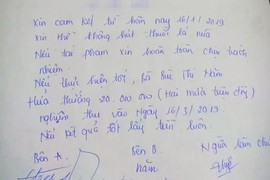 Xin cam kết từ hôm nay 16/1/2019
xin thề không hút thuốc lá nữa
Nếu tái phạm xin hoàn toàn chịu trách
nhiệm
Nếu thực hiện tốt, bà Bùi Thị Năm
thưởng 20.000.000 (Hai mươi triệu đồng)
nghiệm thu vào Ngày 16/3/2019.
Nếu kết quả tốt lấy tiền luôn
Bên A. Bên B. Người làm ch
Năm